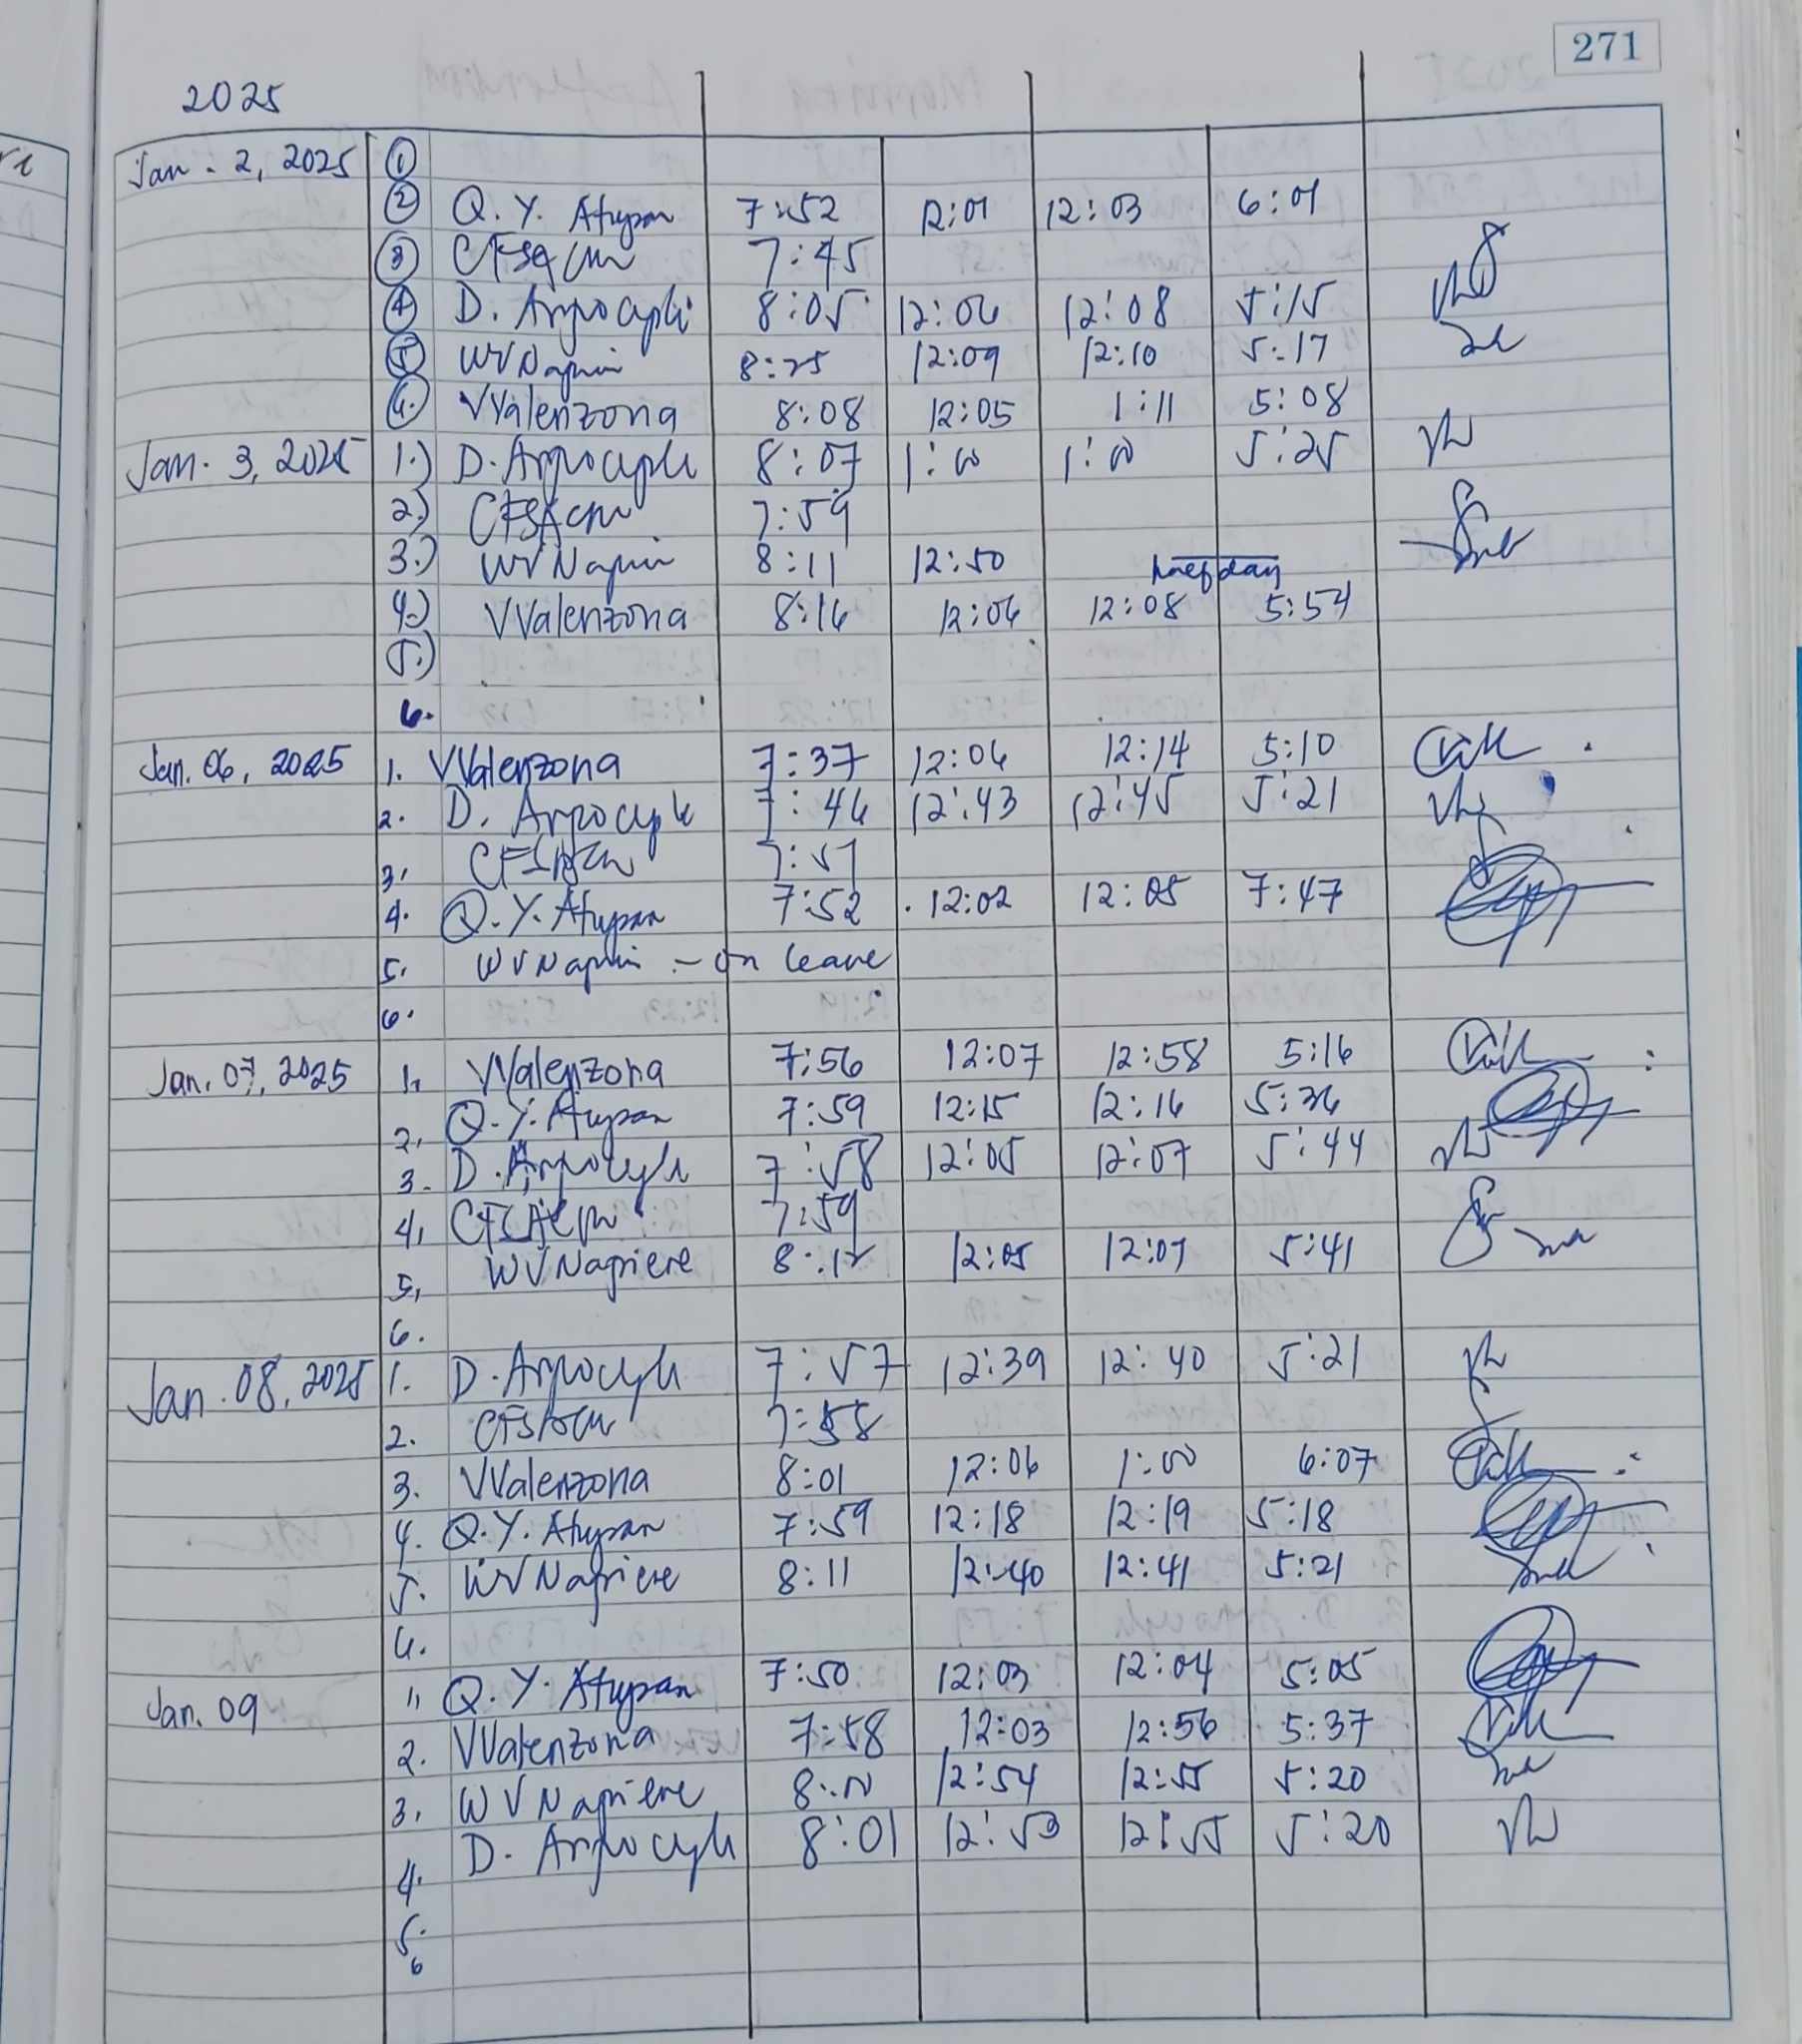 271
2025
Jan. 2, 2025 ①
② Q. Y. Atupan 7:52 12:01 12:03 6:01
③ 7:45
④ D. 8:05 12:06 12:08 5:15
⑤ WVNapiere 8:25 12:09 12:10 5:17
⑥ VValenzona 8:08 12:05 1:11 5:08
Jan. 3, 2025 1.) D. 8:07 1:00 1:00 5:25
2.) 7:59
3.) WVNapiere 8:11 12:50 half day
4.) VValenzona 8:16 12:06 12:08 5:54
5.)
6.
Jan. 06, 2025 1. VValenzona 7:37 12:06 12:14 5:10
2. D. 7:46 12:43 12:45 5:21
3. 7:51
4. Q. Y. Atupan 7:52 12:02 12:05 7:47
5. WVNapiere - on leave
6.
Jan. 07, 2025 1. VValenzona 7:56 12:07 12:58 5:16
2. Q. Y. Atupan 7:59 12:15 12:16 5:36
3. D. 7:58 12:05 12:07 5:44
4. 7:59
5. WVNapiere 8:12 12:05 12:07 5:41
6.
Jan. 08, 2025 1. D. 7:57 12:39 12:40 5:21
2. 7:58
3. VValenzona 8:01 12:06 1:00 6:07
4. Q. Y. Atupan 7:59 12:18 12:19 5:18
5. WVNapiere 8:11 12:40 12:41 5:21
6.
Jan. 09 1. Q. Y. Atupan 7:50 12:03 12:04 5:05
2. VValenzona 7:58 12:03 12:56 5:37
3. WVNapiere 8:00 12:54 12:55 5:20
4. D. 8:01 12:53 12:55 5:20
5.
6